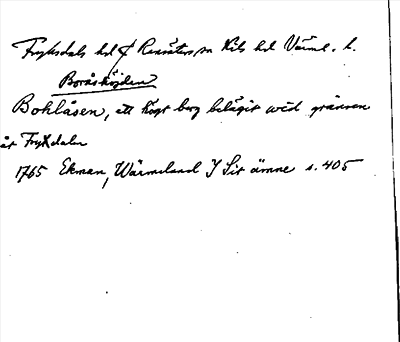 Fryksdals hd / Ransäters sn Kils hd Värml. l.
Boråshöjden
Bohlåsen, ett högt berg belägit wid gränsen
åt Frykdalen
1765 Ekman, Wärmeland I Sit ämne s. 405